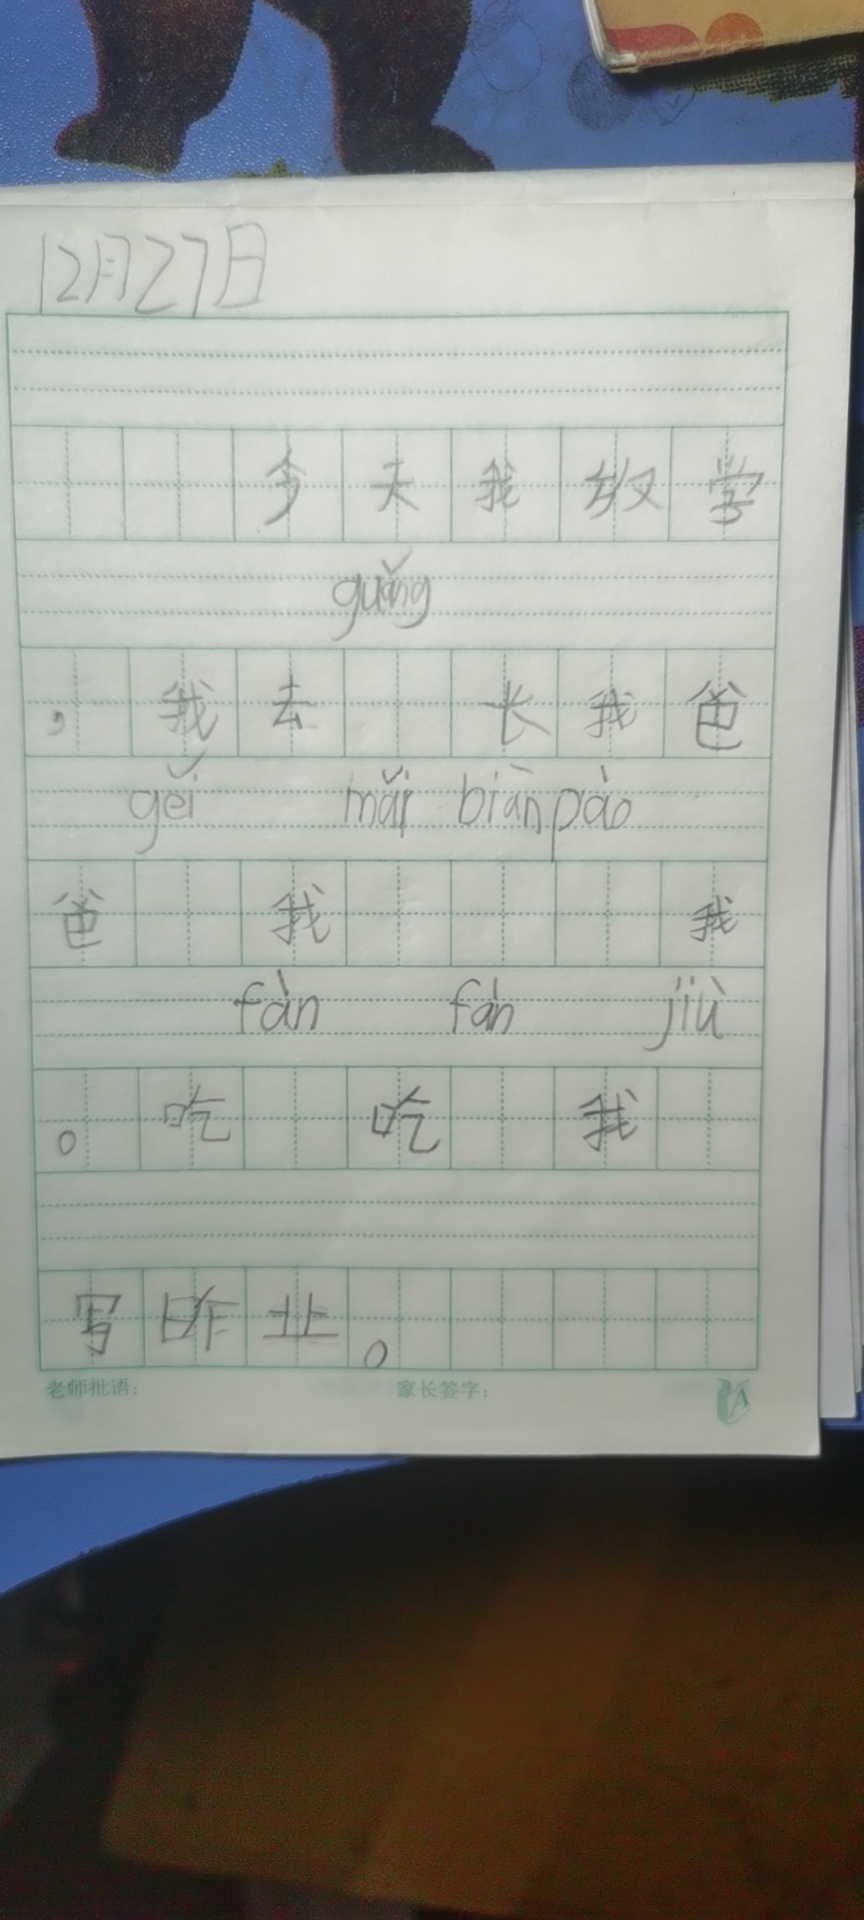 12月27日
今天我放学
guǎng
，我去 长我爸
gěi mǎi biān pào
爸 我 我
fàn fàn jiù
。吃 吃 我
写昨业。
老师批语： 家长签字：